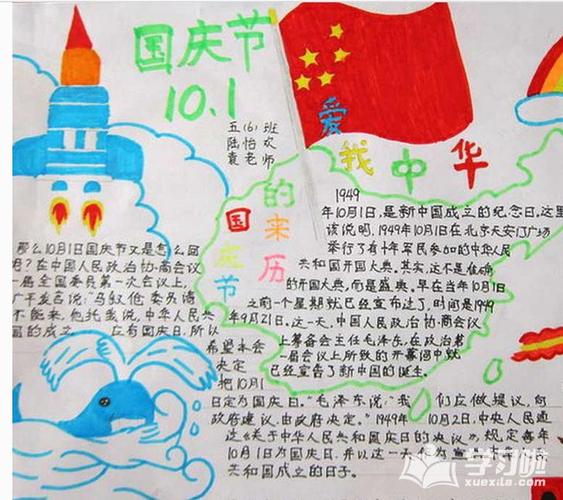 国庆节
10.1
五(6)班
陆怡欢
袁老师
爱我中华
国庆节的来历
1949
年10月1日,是新中国成立的纪念日,这里
该说明,1949年10月1日在北京天安门广场
举行了有十年军民参加的中华人民
共和国开国大典。其实,这不是准确
的开国大典,而是盛典。早在当年10月1日
之前一个星期就已经宣布过了,时间是1949
年9月21日。这一天,中国人民政治协商会议
上筹备会主任毛泽东,在政治第
一届会议上所致的开幕词中就
已经宣告了新中国的诞生。
那么10月1日国庆节又是怎么回
在中国人民政治协商会议
一届全国委员第一次会议上,
广平发言说:"马叙伦委员请
不能来,他托我说,中华人民共
国的成立 应有国庆日,所以
希望本会
决定
把10月1
日定为国庆日。"毛泽东说:"我们应做提议,向
政府建议,由政府决定。"1949年10月2日,中央人民通
过《关于中华人民共和国庆日的决议》,规定每年
10月1日为国庆日,并以这一天为宣
共和国成立的日子。
学习啦
xuexila.com